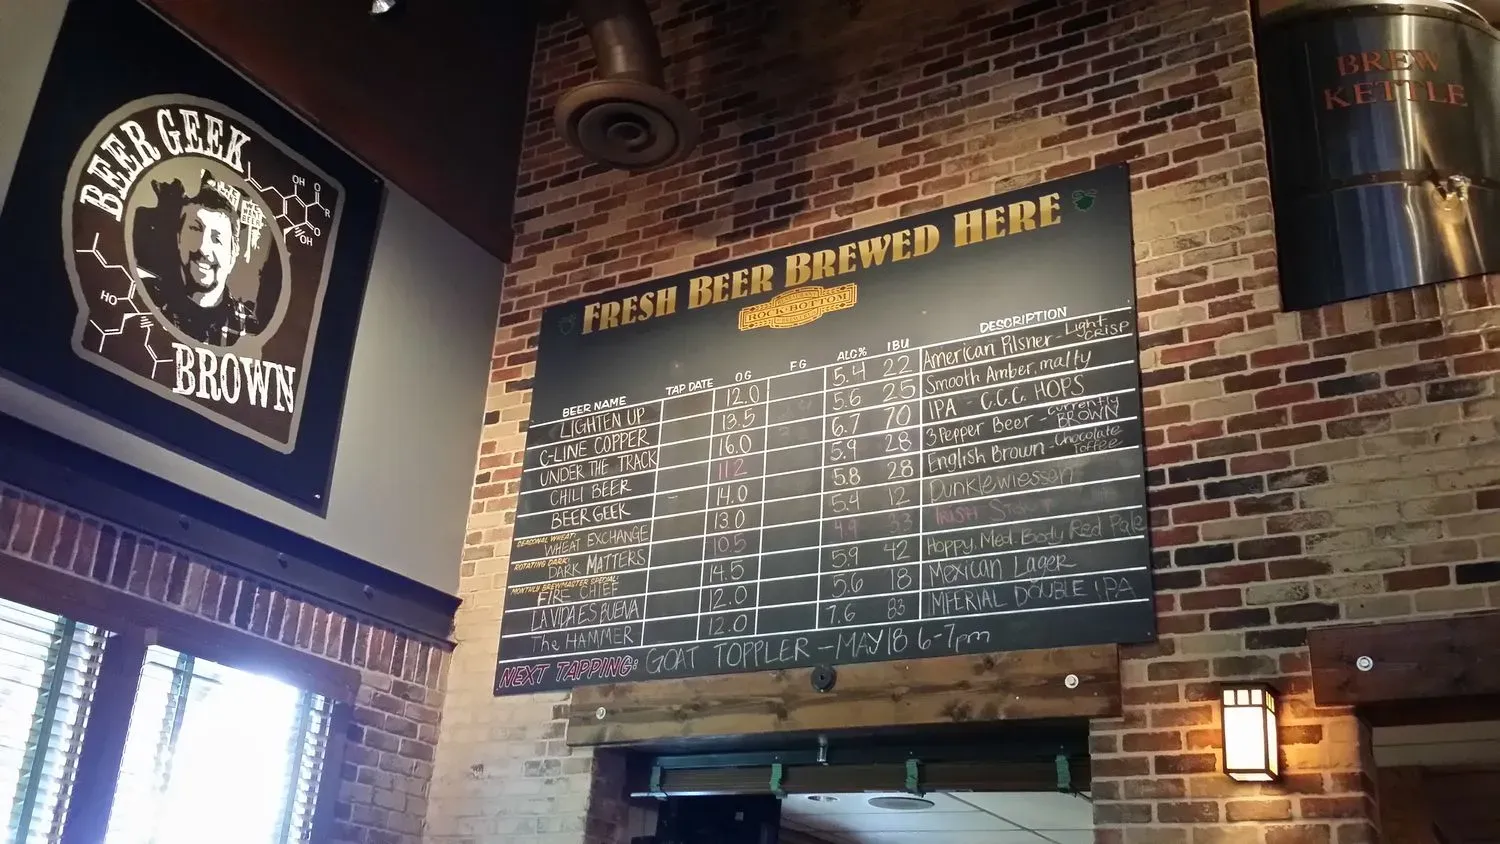 BEER GEEK
BROWN
OH
O
R
O
OH
HO
BREW
KETTLE
FRESH BEER BREWED HERE
ROCK BOTTOM
BEER NAME TAP DATE OG FG ALC% IBU DESCRIPTION
LIGHTEN UP 12.0 5.4 22 American Pilsner - Light CRISP
C-LINE COPPER 13.5 5.6 25 Smooth Amber, malty
UNDER THE TRACK 16.0 6.7 70 IPA - C.C.C. HOPS
CHILI BEER 11.2 5.9 28 3 Pepper Beer - currently BROWN
BEER GEEK 14.0 5.8 28 English Brown - Chocolate Toffee
SEASONAL WHEAT:
WHEAT EXCHANGE 13.0 5.4 12 Dunklewiessen
ROTATING DARK:
DARK MATTERS 10.5 4.9 33 IRISH STOUT
MONTHLY BREWMASTER SPECIAL:
FIRE CHIEF 14.5 5.9 42 Hoppy, Med. Body Red Pale
LA VIDA ES BUENA 12.0 5.6 18 Mexican Lager
The HAMMER 12.0 7.6 83 IMPERIAL DOUBLE IPA
NEXT TAPPING: GOAT TOPPLER - MAY 18 6-7pm